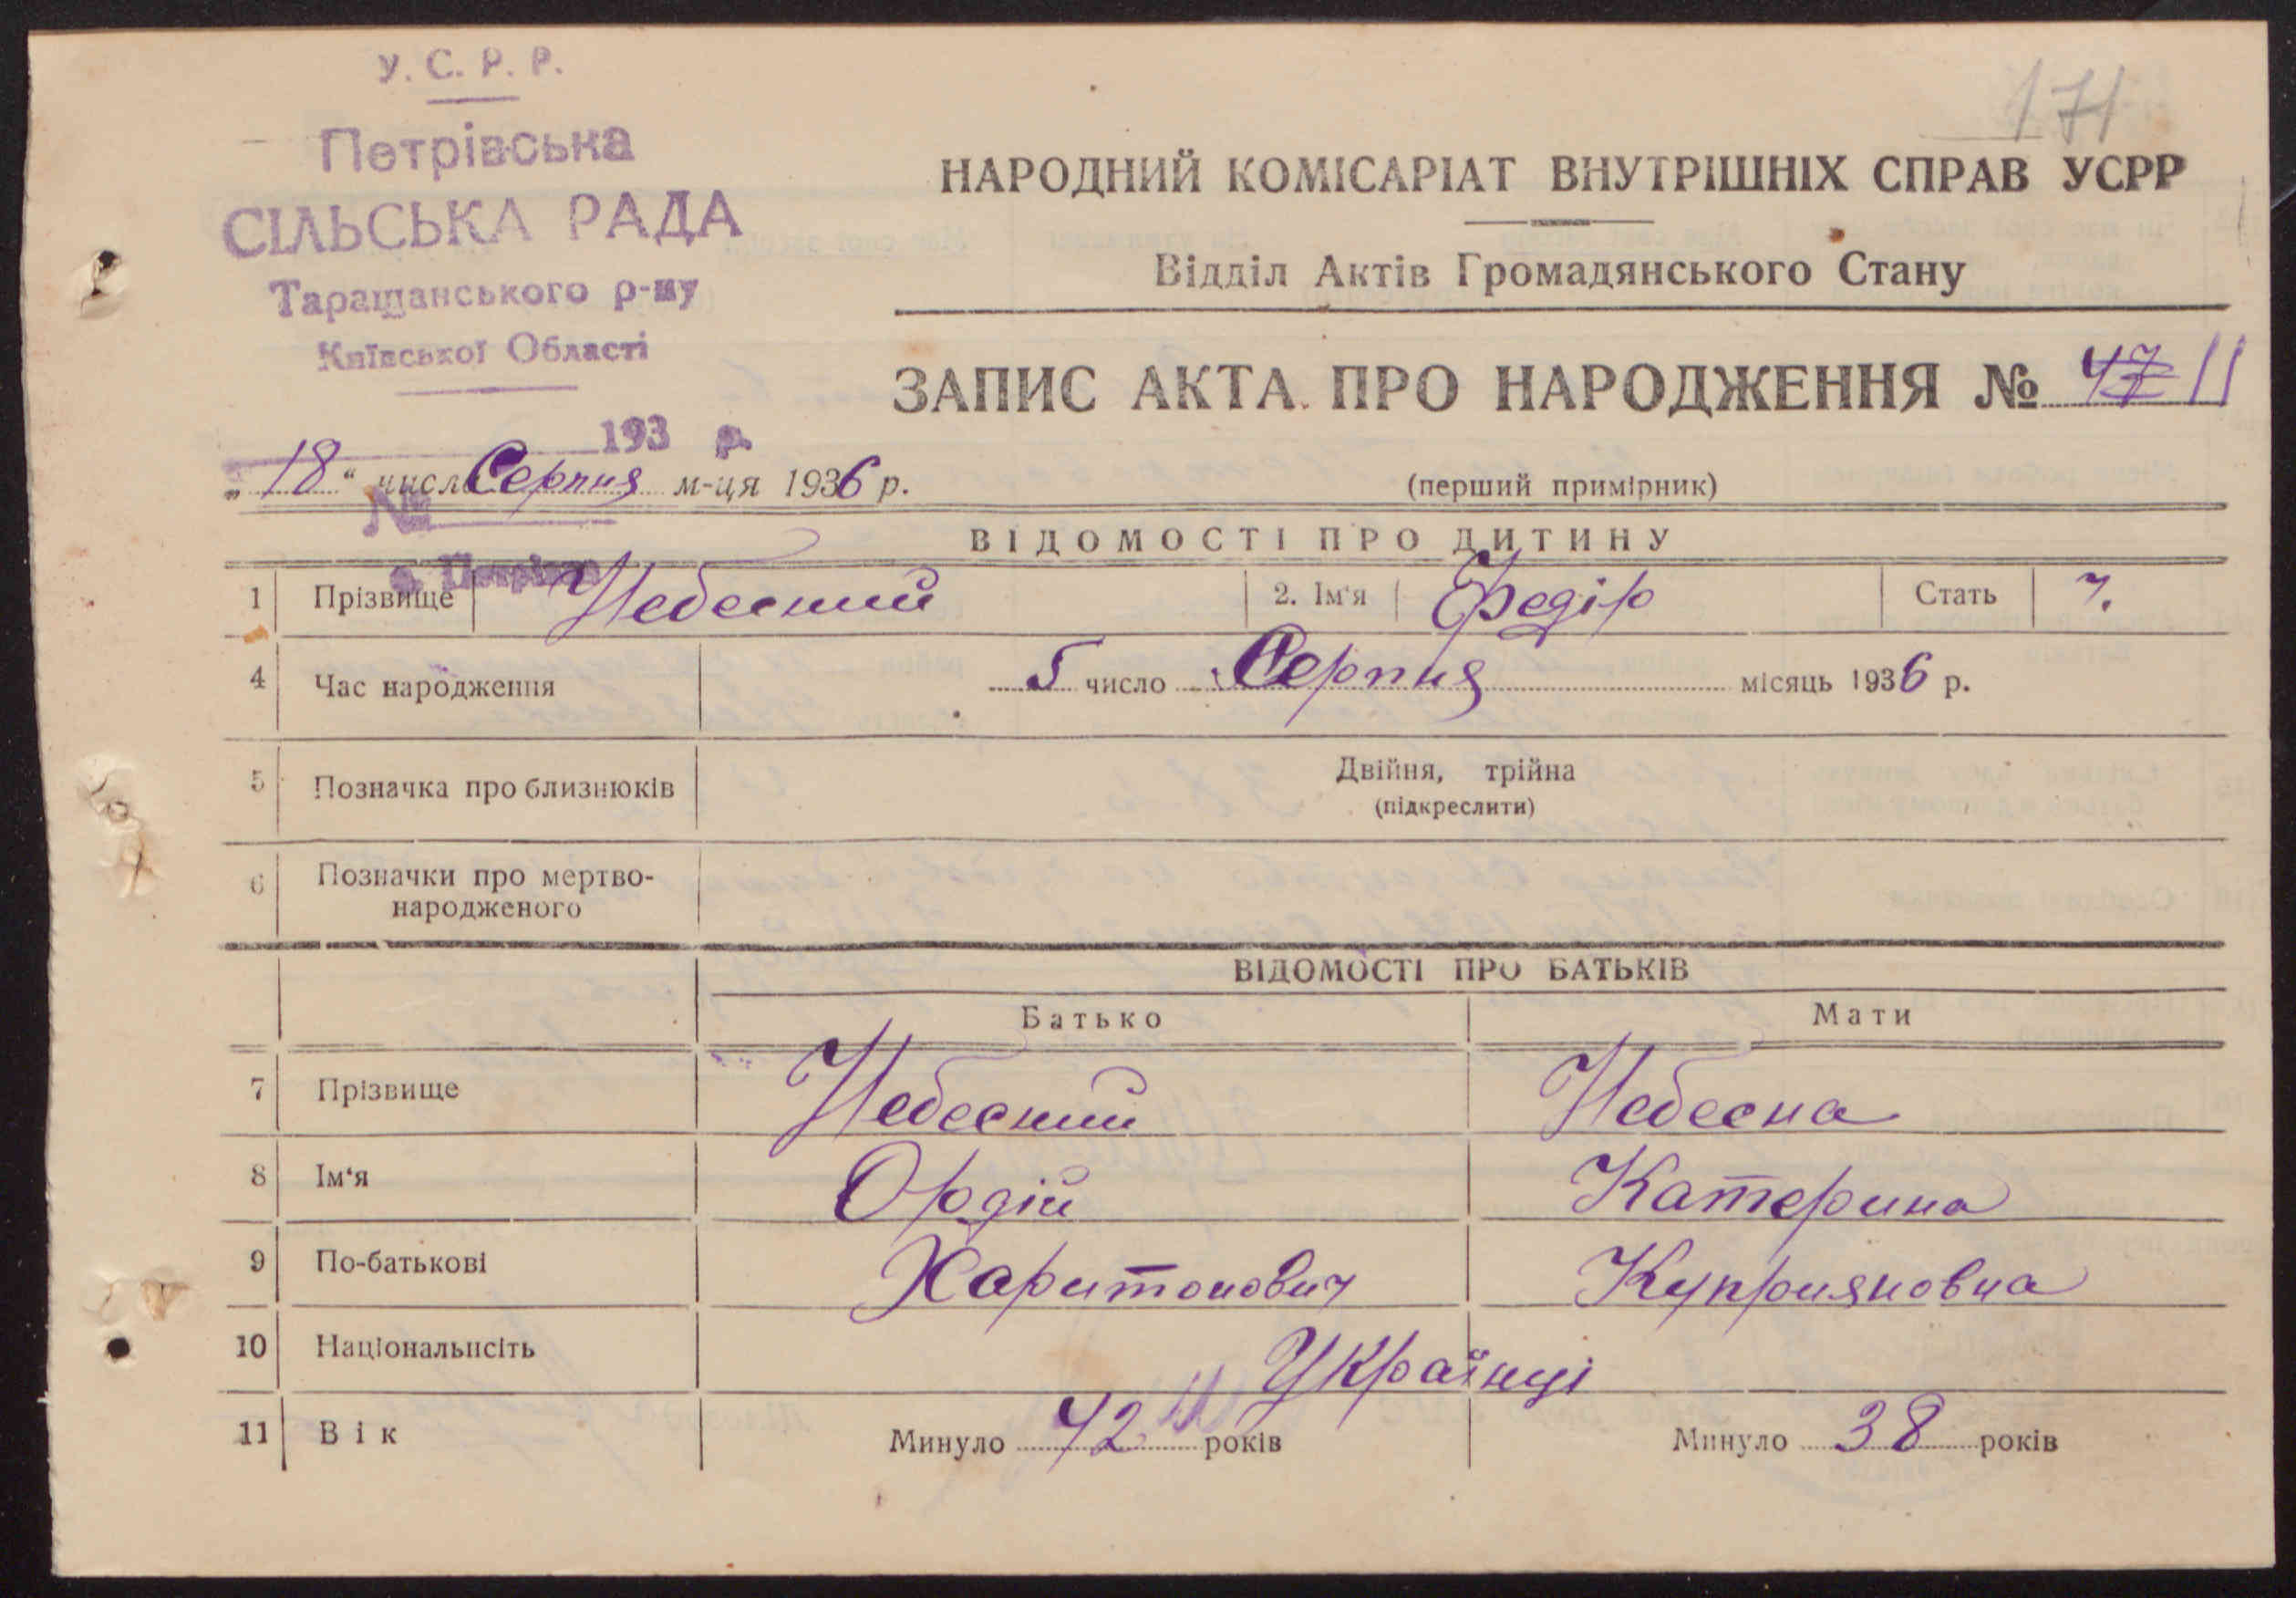 У. С. Р. Р.
171
Петрівська
СІЛЬСЬКА РАДА
Таращанського р-ну
Київської Області
193 р.
№
с. Петрівка
НАРОДНИЙ КОМІСАРІАТ ВНУТРІШНІХ СПРАВ УСРР
Відділ Актів Громадянського Стану
ЗАПИС АКТА ПРО НАРОДЖЕННЯ № 47 11
„18“ числ Серпня м-ця 1936 р.
(перший примірник)
ВІДОМОСТІ ПРО ДИТИНУ
1 Прізвище Небесний 2. Ім'я Федір Стать ч.
4 Час народження 5 число Серпня місяць 1936 р.
5 Позначка про близнюків Двійня, трійна
(підкреслити)
6 Позначки про мертво-
народженого
ВІДОМОСТІ ПРО БАТЬКІВ
Батько Мати
7 Прізвище Небесний Небесна
8 Ім‘я Ордій Катерина
9 По-батькові Харитонович Куприяновна
10 Національнсіть Українці
11 Вік Минуло 42 років Минуло 38 років